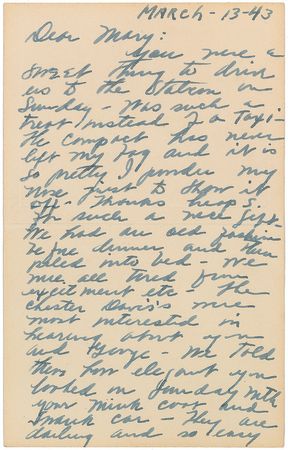 MARCH-13-43
Dear Mary:
You were a
sweet thing to drive
us to the Station on
Sunday - Was such a
treat instead of a taxi -
The compact has never
left my bag and it is
so pretty I powder my
nose just to show it
off - Thanks heaps.
for such a nice gift.
We had an old fashion
before dinner and then
piled into bed - We
were all tired from
excitement etc - The
Chester Davis's were
most interested in
hearing about you
and George - We told
them how elegant you
looked on Sunday with
your mink coat and
car - They are
darling and so easy